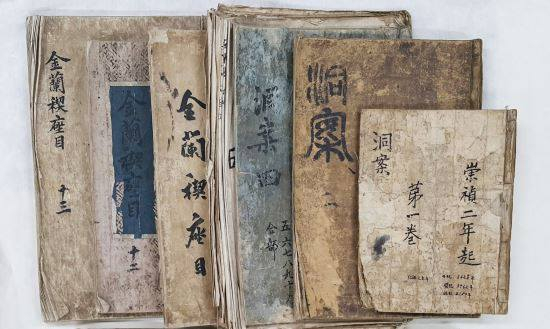 金蘭禊座目
十三
金蘭禊座目
十二
金蘭禊座目
洞案四
五六七八九十
合部
洞案
二
崇禎二年起
洞案
第一卷